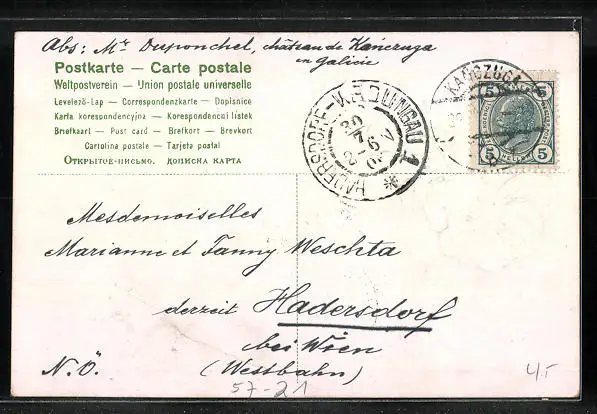 Abs: Mr Duponchel, château de Kánczuga
en Galicie
Postkarte — Carte postale
Weltpostverein — Union postale universelle
Levelező-Lap — Correspondenzkarte — Dopisnice
Karta korespondencyjna — Korespondenční lístek
Briefkaart — Post card — Brefkort — Brevkort
Cartolina postale — Tarjeta postal
Открытое письмо. Дописна карта
HADERSDORF-WEIDLINGAU 1
20
7
2-6 N
KAŃCZUGA
5 5
5 HELLER 5
Mesdemoiselles
Marianne et Fanny Weschta
derzeit Hadersdorf
bei Wien
N.Ö. (Westbahn)
57-21
4,-